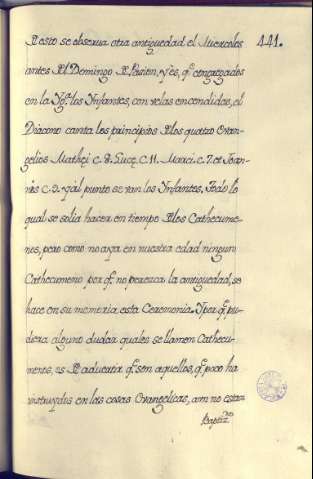 441.
D esto se obserua otra antiguedad el Miercoles
antes Del Domingo D Pasion, y es, q̃ congregados
en la Yga. los Ynfantes, con velas encendidas, el
Diacono canta los principios Delos quatro Euan-
gelios Mathęi c. 8. Lucę C. 11. Marci c. 7. et Joan-
nis c. 5. y al punto se van los Ynfantes, Todo lo
qual se solia hacer en tiempo Delos Cathecume-
nos, pero como no aya en nuestra edad ningun
Cathecumeno por q̃ no perezca la antiguedad, se
hace en su memoria esta Ceremonia. Y por q̃ pu-
diera alguno dudar quales se llamen Cathecu-
menos, es D aduertir q̃ son aquellos, q̃ poco ha
instruydos en las cosas Euangelicas, aun no estan
Baptizos